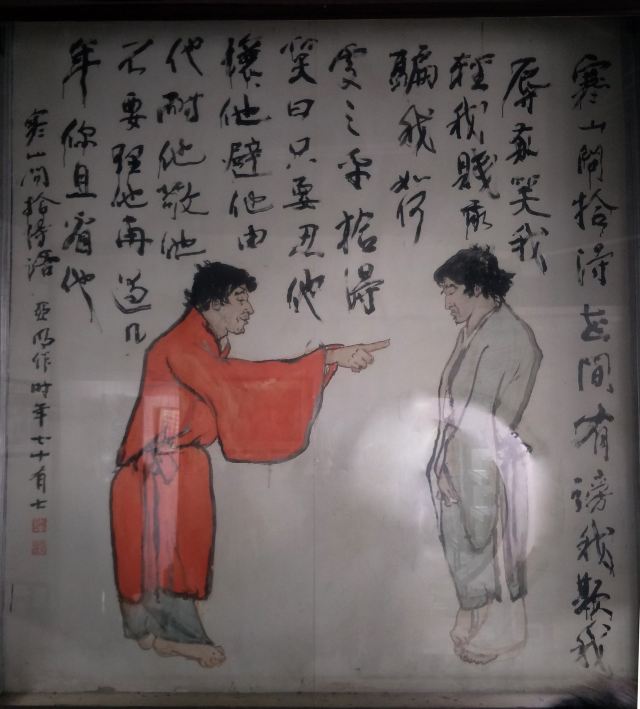 寒山問拾得世間有謗我欺我
辱我笑我
輕我賤我
騙我如何
處之乎拾得
笑曰只要忍他
讓他避他由
他耐他敬他
不要理他再過几
年你且看他
寒山問拾得語 亞明作時年七十有